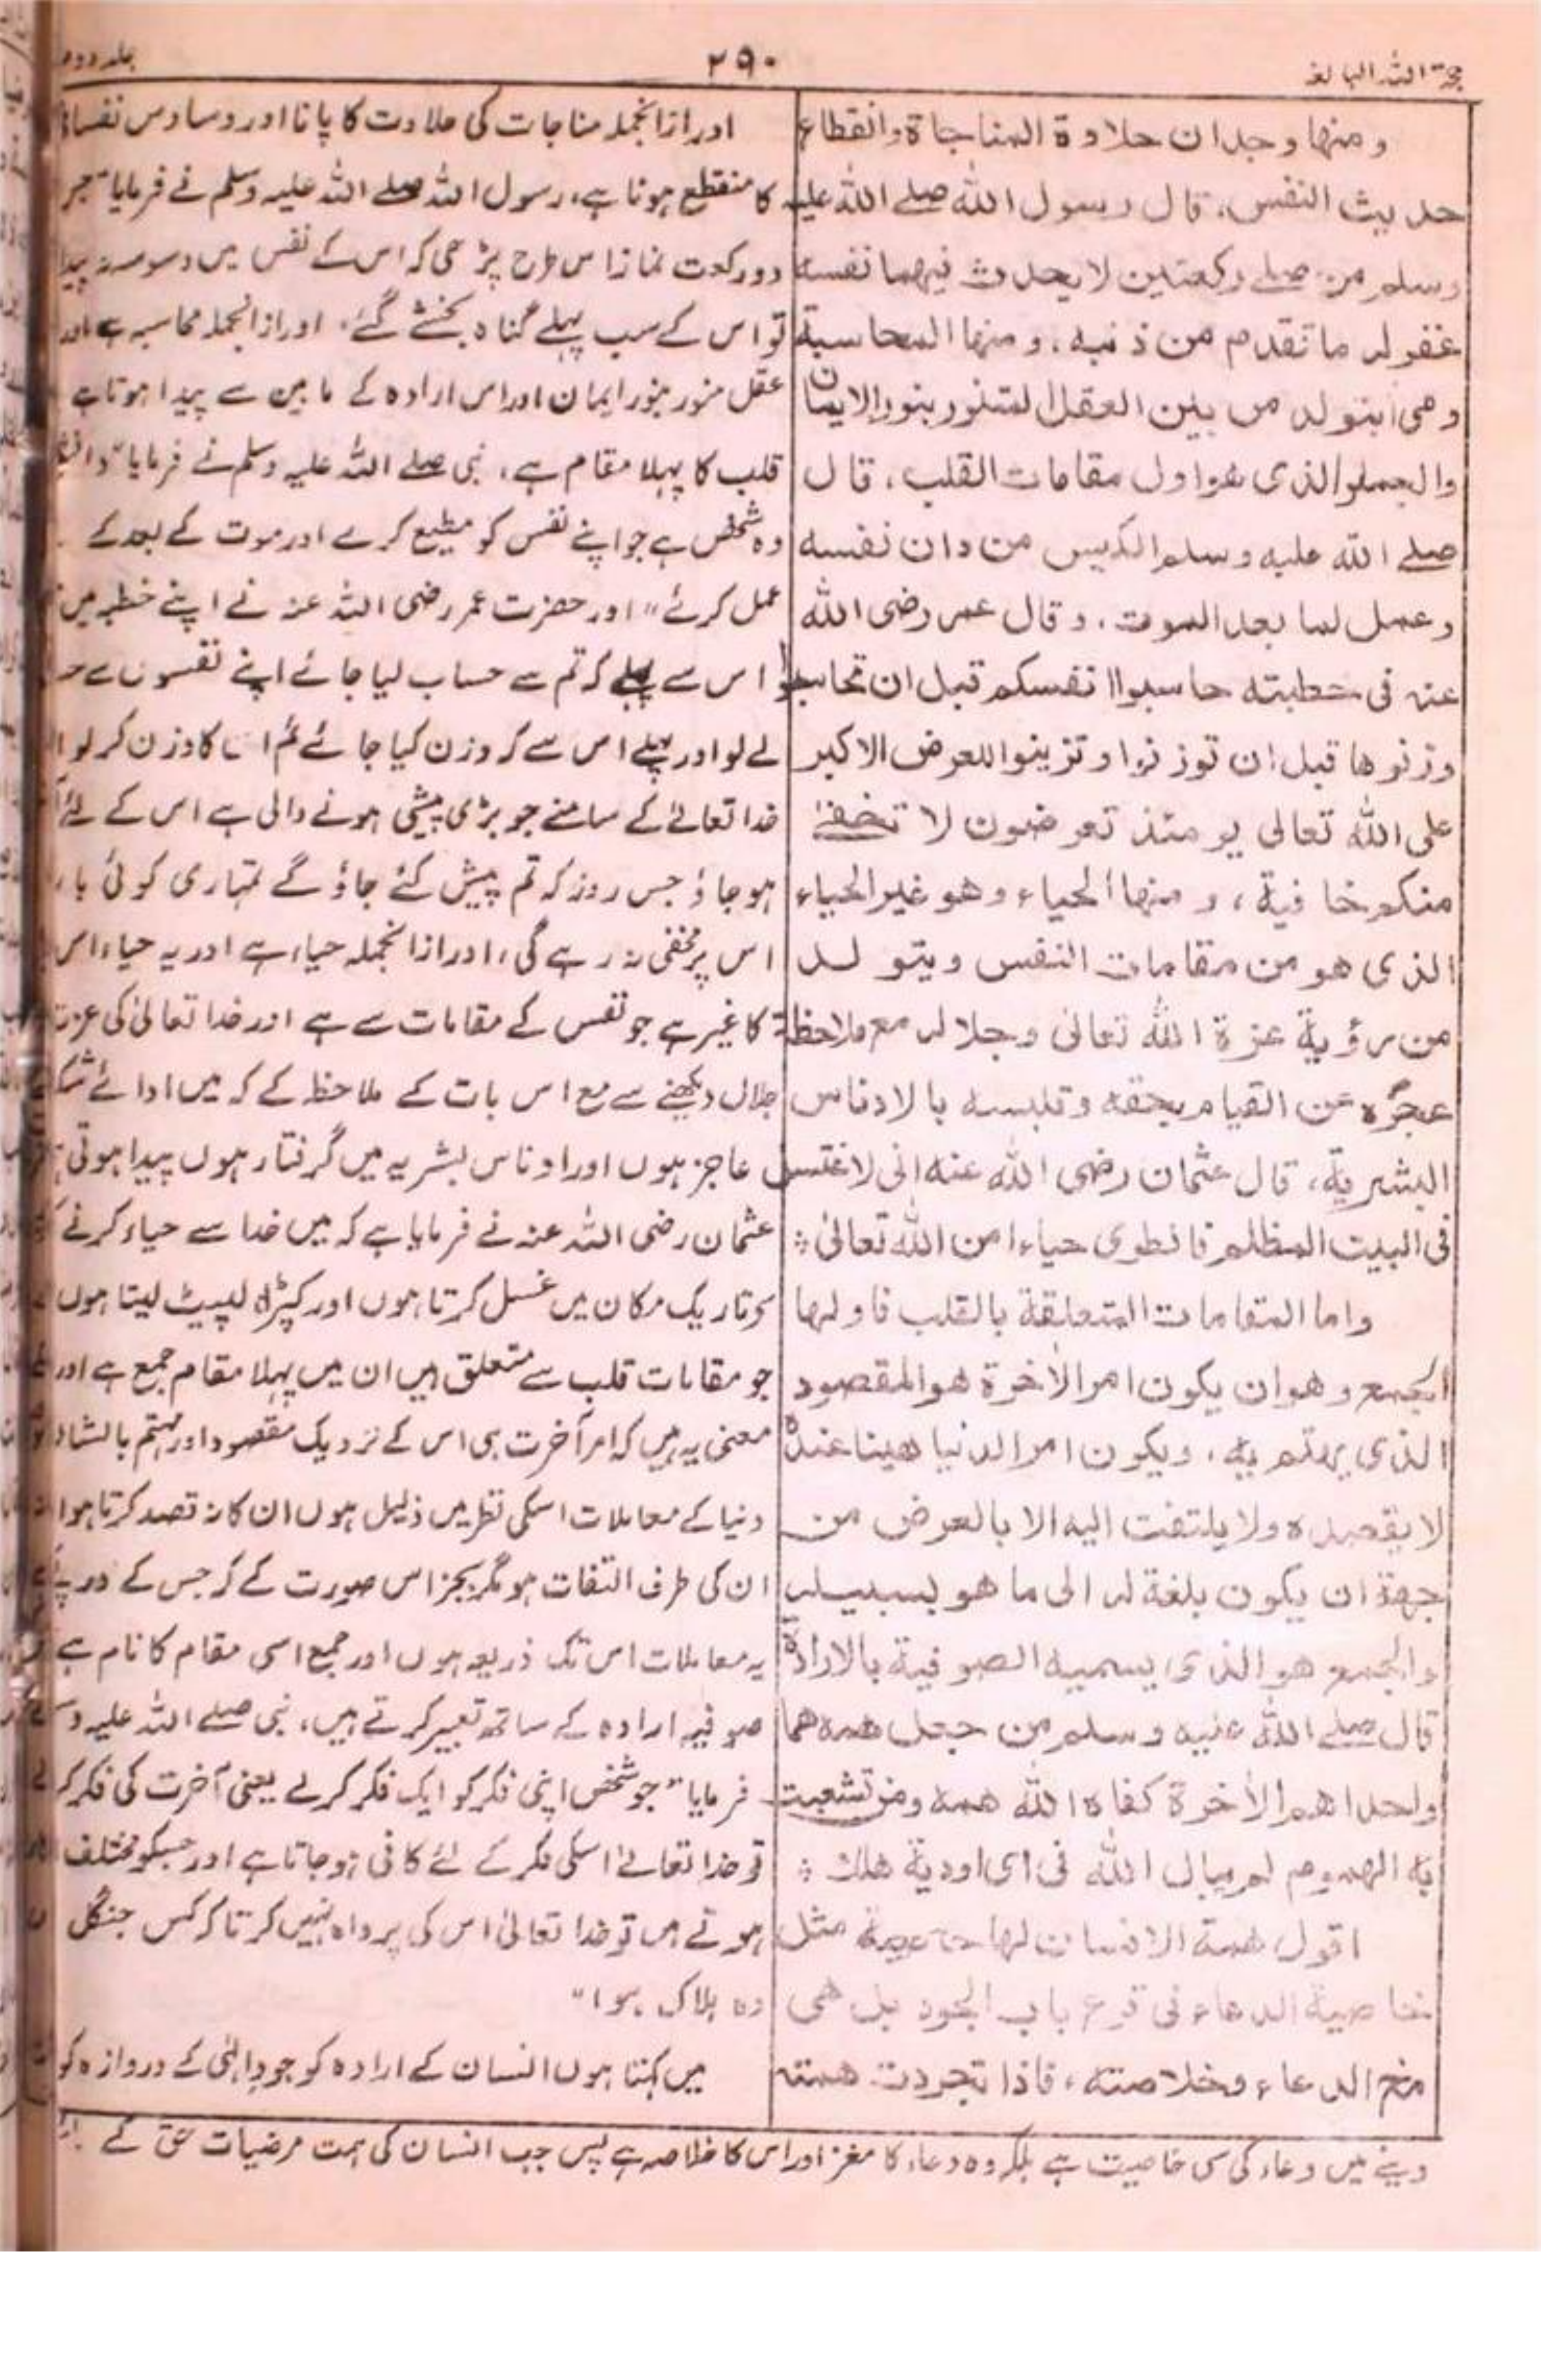 حجۃ اللہ البالغہ
۲۹۰
جلد دوم
ومنها وجدان حلاوة المناجاة وانقطاع
حديث النفس، قال رسول الله صلے الله عليه
وسلم من صلے ركعتين لا يحدث فيهما نفسه
غفر له ما تقدم من ذنبه، ومنها المحاسبة
وهى تتولد من بين العقل المتنور بنور الايمان
والجمع الذى هو اول مقامات القلب، قال
صلے الله عليه وسلم الكيس من دان نفسه
وعمل لما بعد الموت، وقال عمر رضى الله
عنه فى خطبته حاسبوا انفسكم قبل ان تحاسبوا
وزنوها قبل ان توزنوا وتزينوا للعرض الاكبر
على الله تعالى يومئذ تعرضون لا تخفےٰ
منكم خافية، ومنها الحياء وهو غير الحياء
الذى هو من مقامات النفس ويتولد
من رؤية عزة الله تعالى وجلاله مع ملاحظة
عجزه عن القيام بحقه وتلبسه بالادناس
البشرية، قال عثمان رضى الله عنه انى لاغتسل
فى البيت المظلم فانطوى حياءا من الله تعالىٰ ؞
واما المقامات المتعلقة بالقلب فاولها
الجمع وهو ان يكون امر الاٰخرة هو المقصود
الذى يهتم به، ويكون امر الدنيا هينا عنده
لا يقصده ولا يلتفت اليه الا بالعرض من
جهة ان يكون بلغة له الى ما هو بسبيله
والجمع هو الذى يسميه الصوفية بالارادة
قال صلے الله عليه وسلم من جعل همه هما
واحدا هم الاٰخرة كفاه الله همه ومن تشعبت
به الهموم لم يبال الله فى اى اودية هلك ؞
اقول همة الانسان لها خاصية مثل
خاصية الدعاء فى قرع باب الجود بل هى
مخ الدعاء وخلاصته، فاذا تجردت همته
اور ازانجملہ مناجات کی حلاوت کا پانا اور وساوس
کا منقطع ہونا ہے، رسول اللہ صلے اللہ علیہ وسلم نے فرمایا "جس
دو رکعت نماز اس طرح پڑھی کہ اس کے نفس میں وسوسہ نہ پیدا
تو اس کے سب پہلے گناہ بخشے گئے، اور ازانجملہ محاسبہ ہے اور
عقل منور بنور ایمان اور اس ارادہ کے مابین سے پیدا ہوتا ہے
قلب کا پہلا مقام ہے، نبی صلے اللہ علیہ وسلم نے فرمایا
وہ شخص ہے جو اپنے نفس کو مطیع کرے اور موت کے بعد کے
عمل کرئے" اور حضرت عمر رضی اللہ عنہ نے اپنے خطبہ میں
اس سے پہلے کہ تم سے حساب لیا جائے اپنے نفسوں سے
لے لو اور پہلے اس سے کہ وزن کیا جائے تم ان کا وزن کر لو
خدا تعالےٰ کے سامنے جو بڑی پیشی ہونے والی ہے اس کے لئے
ہو جاؤ جس روز کہ تم پیش کئے جاؤ گے تمہاری کوئی
اس پر مخفی نہ رہے گی، اور ازانجملہ حیاء ہے اور یہ حیاء اس
کا غیر ہے جو نفس کے مقامات سے ہے اور خدا تعالیٰ کی عزت
جلال دیکھنے سے مع اس بات کے ملاحظہ کے کہ میں ادائے
عاجز ہوں اور ادناس بشریہ میں گرفتار ہوں پیدا ہوتی
عثمان رضی اللہ عنہ نے فرمایا ہے کہ میں خدا سے حیاء کرنے
تاریک مکان میں غسل کرتا ہوں اور کپڑا لپیٹ لیتا ہوں
جو مقامات قلب سے متعلق ہیں ان میں پہلا مقام جمع ہے اور
معنی یہ ہیں کہ امر آخرت ہی اس کے نزدیک مقصود اور مہتم بالشان
دنیا کے معاملات اسکی نظر میں ذلیل ہوں ان کا نہ قصد کرتا ہو
ان کی طرف التفات ہو مگر بجز اس صورت کے کہ جس کے درپے
یہ معاملات اس تک ذریعہ ہوں اور جمع اسی مقام کا نام ہے
صوفیہ ارادہ کے ساتھ تعبیر کرتے ہیں، نبی صلے اللہ علیہ
فرمایا "جو شخص اپنی فکر کو ایک فکر کرلے یعنی آخرت کی فکر
تو خدا تعالےٰ اسکی فکر کے لئے کافی ہو جاتا ہے اور جسکو مختلف
ہوتے ہیں تو خدا تعالیٰ اس کی پرواہ نہیں کرتا کہ کس جنگل
وہ ہلاک ہوا"
میں کہتا ہوں انسان کے ارادہ کو جود الٰہی کے دروازہ کو
دینے میں دعاء کی سی خاصیت ہے بلکہ وہ دعاء کا مغز اور اس کا خلاصہ ہے پس جب انسان کی ہمت مرضیات حق کے